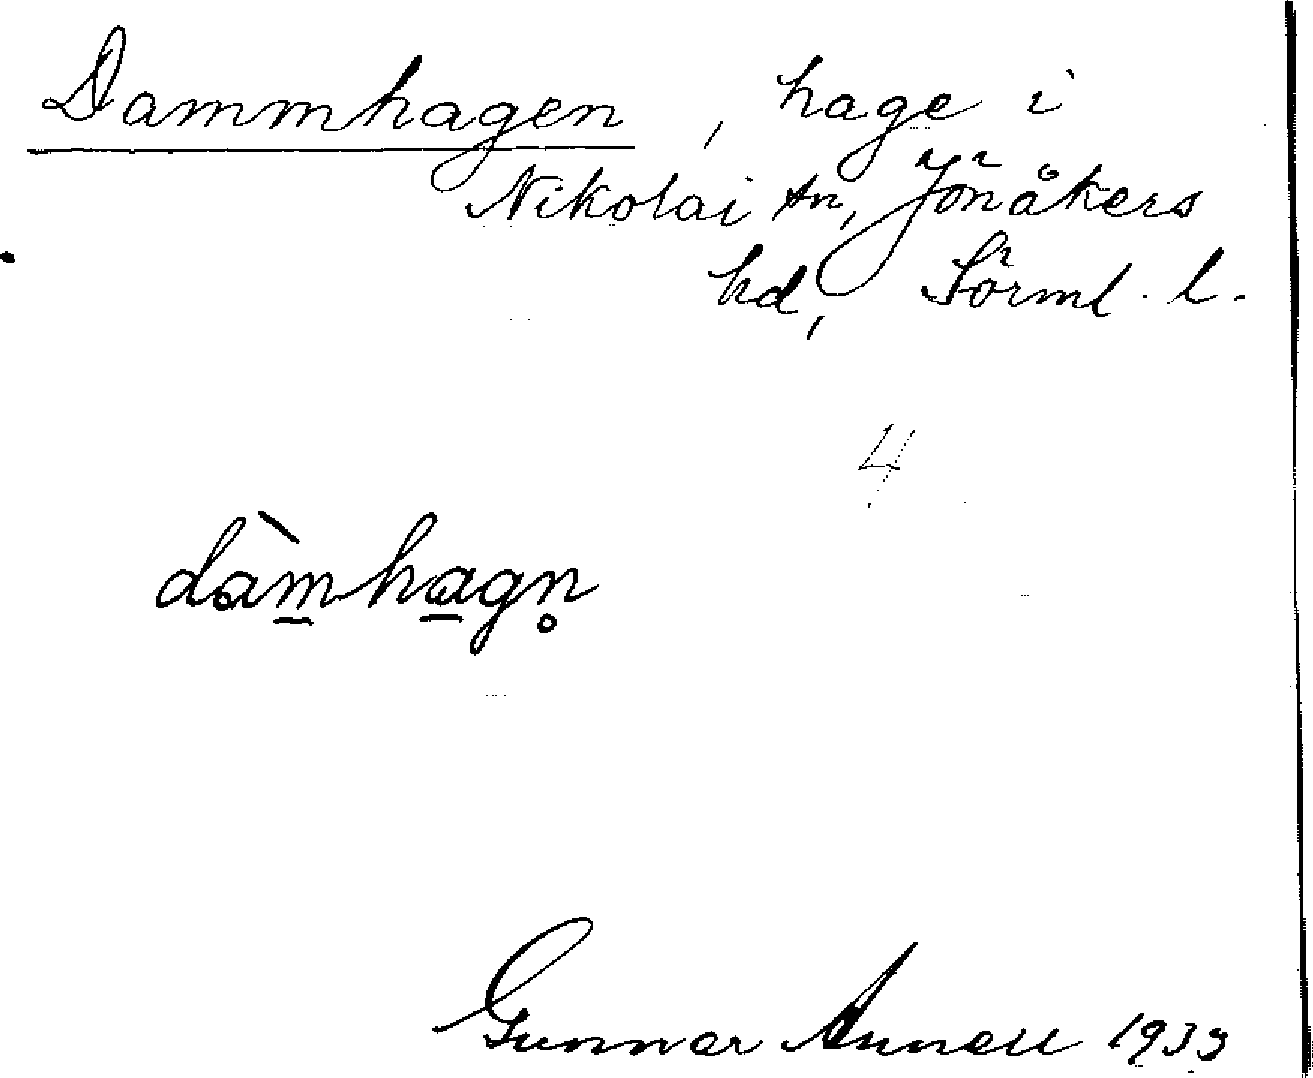 Dammhagen, hage i
Nikolai sn, Jönåkers
hd, Sörml. l.
4
dàm̱ha̱gn̥
Gunnar Annell 1933